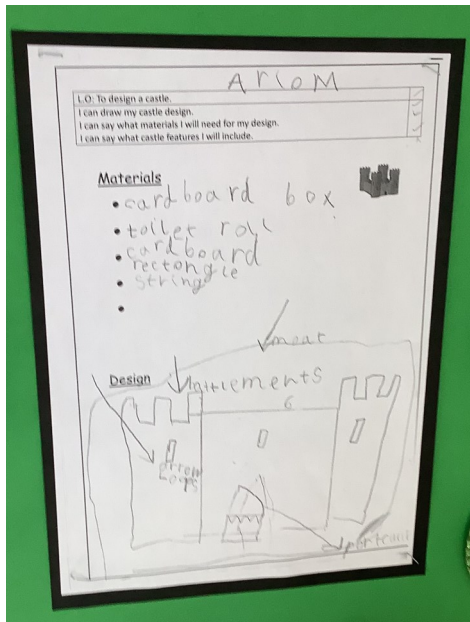 ArIoM
L.O: To design a castle.
I can draw my castle design.
I can say what materials I will need for my design.
I can say what castle features I will include.
Materials
• cardboard box
• toilet roll
• cardboard
rectongle
• string
•
moat
Design
battlements
6
arrow
loops
portcull